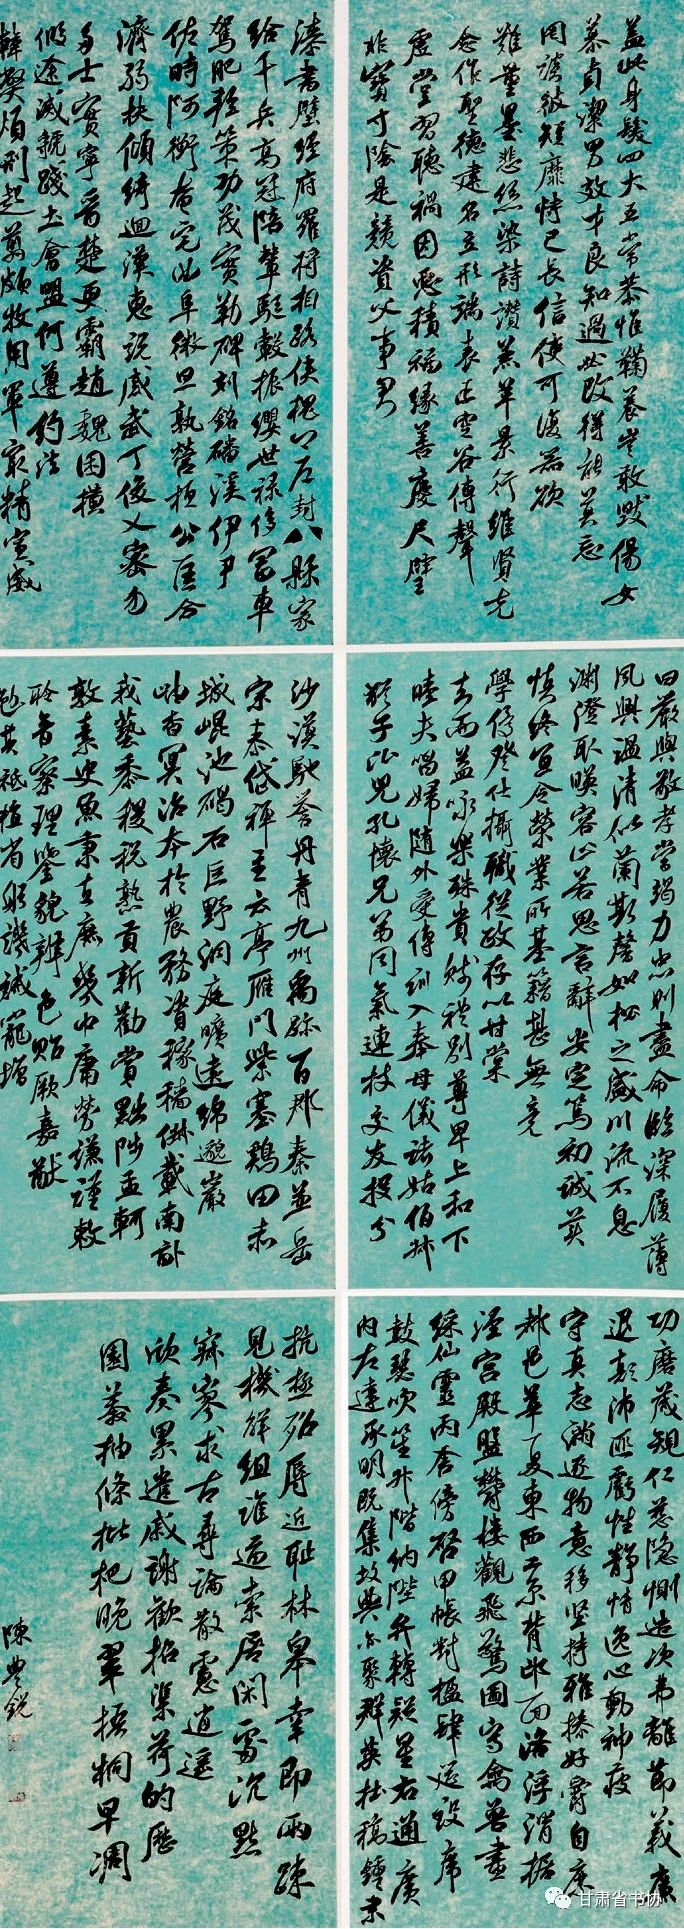 蓋此身髮四大五常恭惟鞠養豈敢毀傷女
慕貞潔男效才良知過必改得能莫忘
罔談彼短靡恃己長信使可復器欲
難量墨悲絲染詩讚羔羊景行維賢克
念作聖德建名立形端表正空谷傳聲
虛堂習聽禍因惡積福緣善慶尺璧
非寶寸陰是競資父事君
曰嚴與敬孝當竭力忠則盡命臨深履薄
夙興溫清似蘭斯馨如松之盛川流不息
淵澄取暎容止若思言辭安定篤初誠美
慎終宜令榮業所基籍甚無竟
學優登仕攝職從政存以甘棠
去而益詠樂殊貴賤禮別尊卑上和下
睦夫唱婦隨外受傅訓入奉母儀諸姑伯叔
猶子比兒孔懷兄弟同氣連枝交友投分
切磨箴規仁慈隱惻造次弗離節義廉
退顛沛匪虧性靜情逸心動神疲
守真志滿逐物意移堅持雅操好爵自縻
都邑華夏東西二京背邙面洛浮渭據
涇宮殿盤鬱樓觀飛驚圖寫禽獸畫
綵仙靈丙舍傍啟甲帳對楹肆筵設席
鼓瑟吹笙升階納陛弁轉疑星右通廣
內左達承明既集墳典亦聚群英杜稿鍾隸
漆書壁經府羅將相路俠槐卿戶封八縣家
給千兵高冠陪輦驅轂振纓世祿侈富車
駕肥輕策功茂實勒碑刻銘磻溪伊尹
佐時阿衡奄宅曲阜微旦孰營桓公匡合
濟弱扶傾綺迴漢惠說感武丁俊乂密勿
多士寔寧晉楚更霸趙魏困橫
假途滅虢踐土會盟何遵約法
韓弊煩刑起翦頗牧用軍最精宣威
沙漠馳譽丹青九州禹跡百郡秦並岳
宗泰岱禪主云亭雁門紫塞鷄田赤
城崐池碣石巨野洞庭曠遠綿邈巖
岫杳冥治本於農務資稼穡俶載南畝
我藝黍稷稅熟貢新勸賞黜陟孟軻
敦素史魚秉直庶幾中庸勞謙謹敕
聆音察理鑒貌辨色貽厥嘉猷
勉其祗植省躬譏誡寵增
抗極殆辱近恥林皋幸即兩疏
見機解組誰逼索居閑處沉默
寂寥求古尋論散慮逍遙
欣奏累遣慼謝歡招渠荷的歷
園莽抽條枇杷晚翠梧桐早凋
甘肃省书协